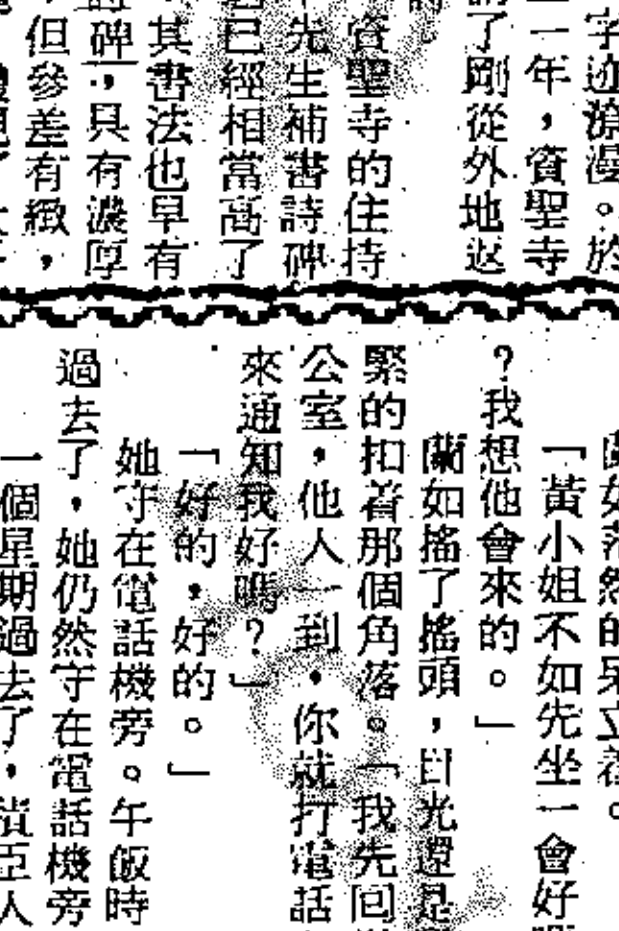 字迹漪漫。於
一年，資聖寺
了剛從外地返
資聖寺的住持
先生補書詩碑
已經相當高了
其書法也早有
碑；具有濃厚
但參差有緻，
蘭如茫然的呆立着。
「黃小姐不如先坐一會好
？我想他會來的。」
蘭如搖了搖頭，目光還是
緊的扣着那個角落。「我先回
公室，他人一到，你就打電話
來通知我好嗎？」
「好的，好的。」
她守在電話機旁。午飯時
過去了，她仍然守在電話機旁
一個星期過去了，